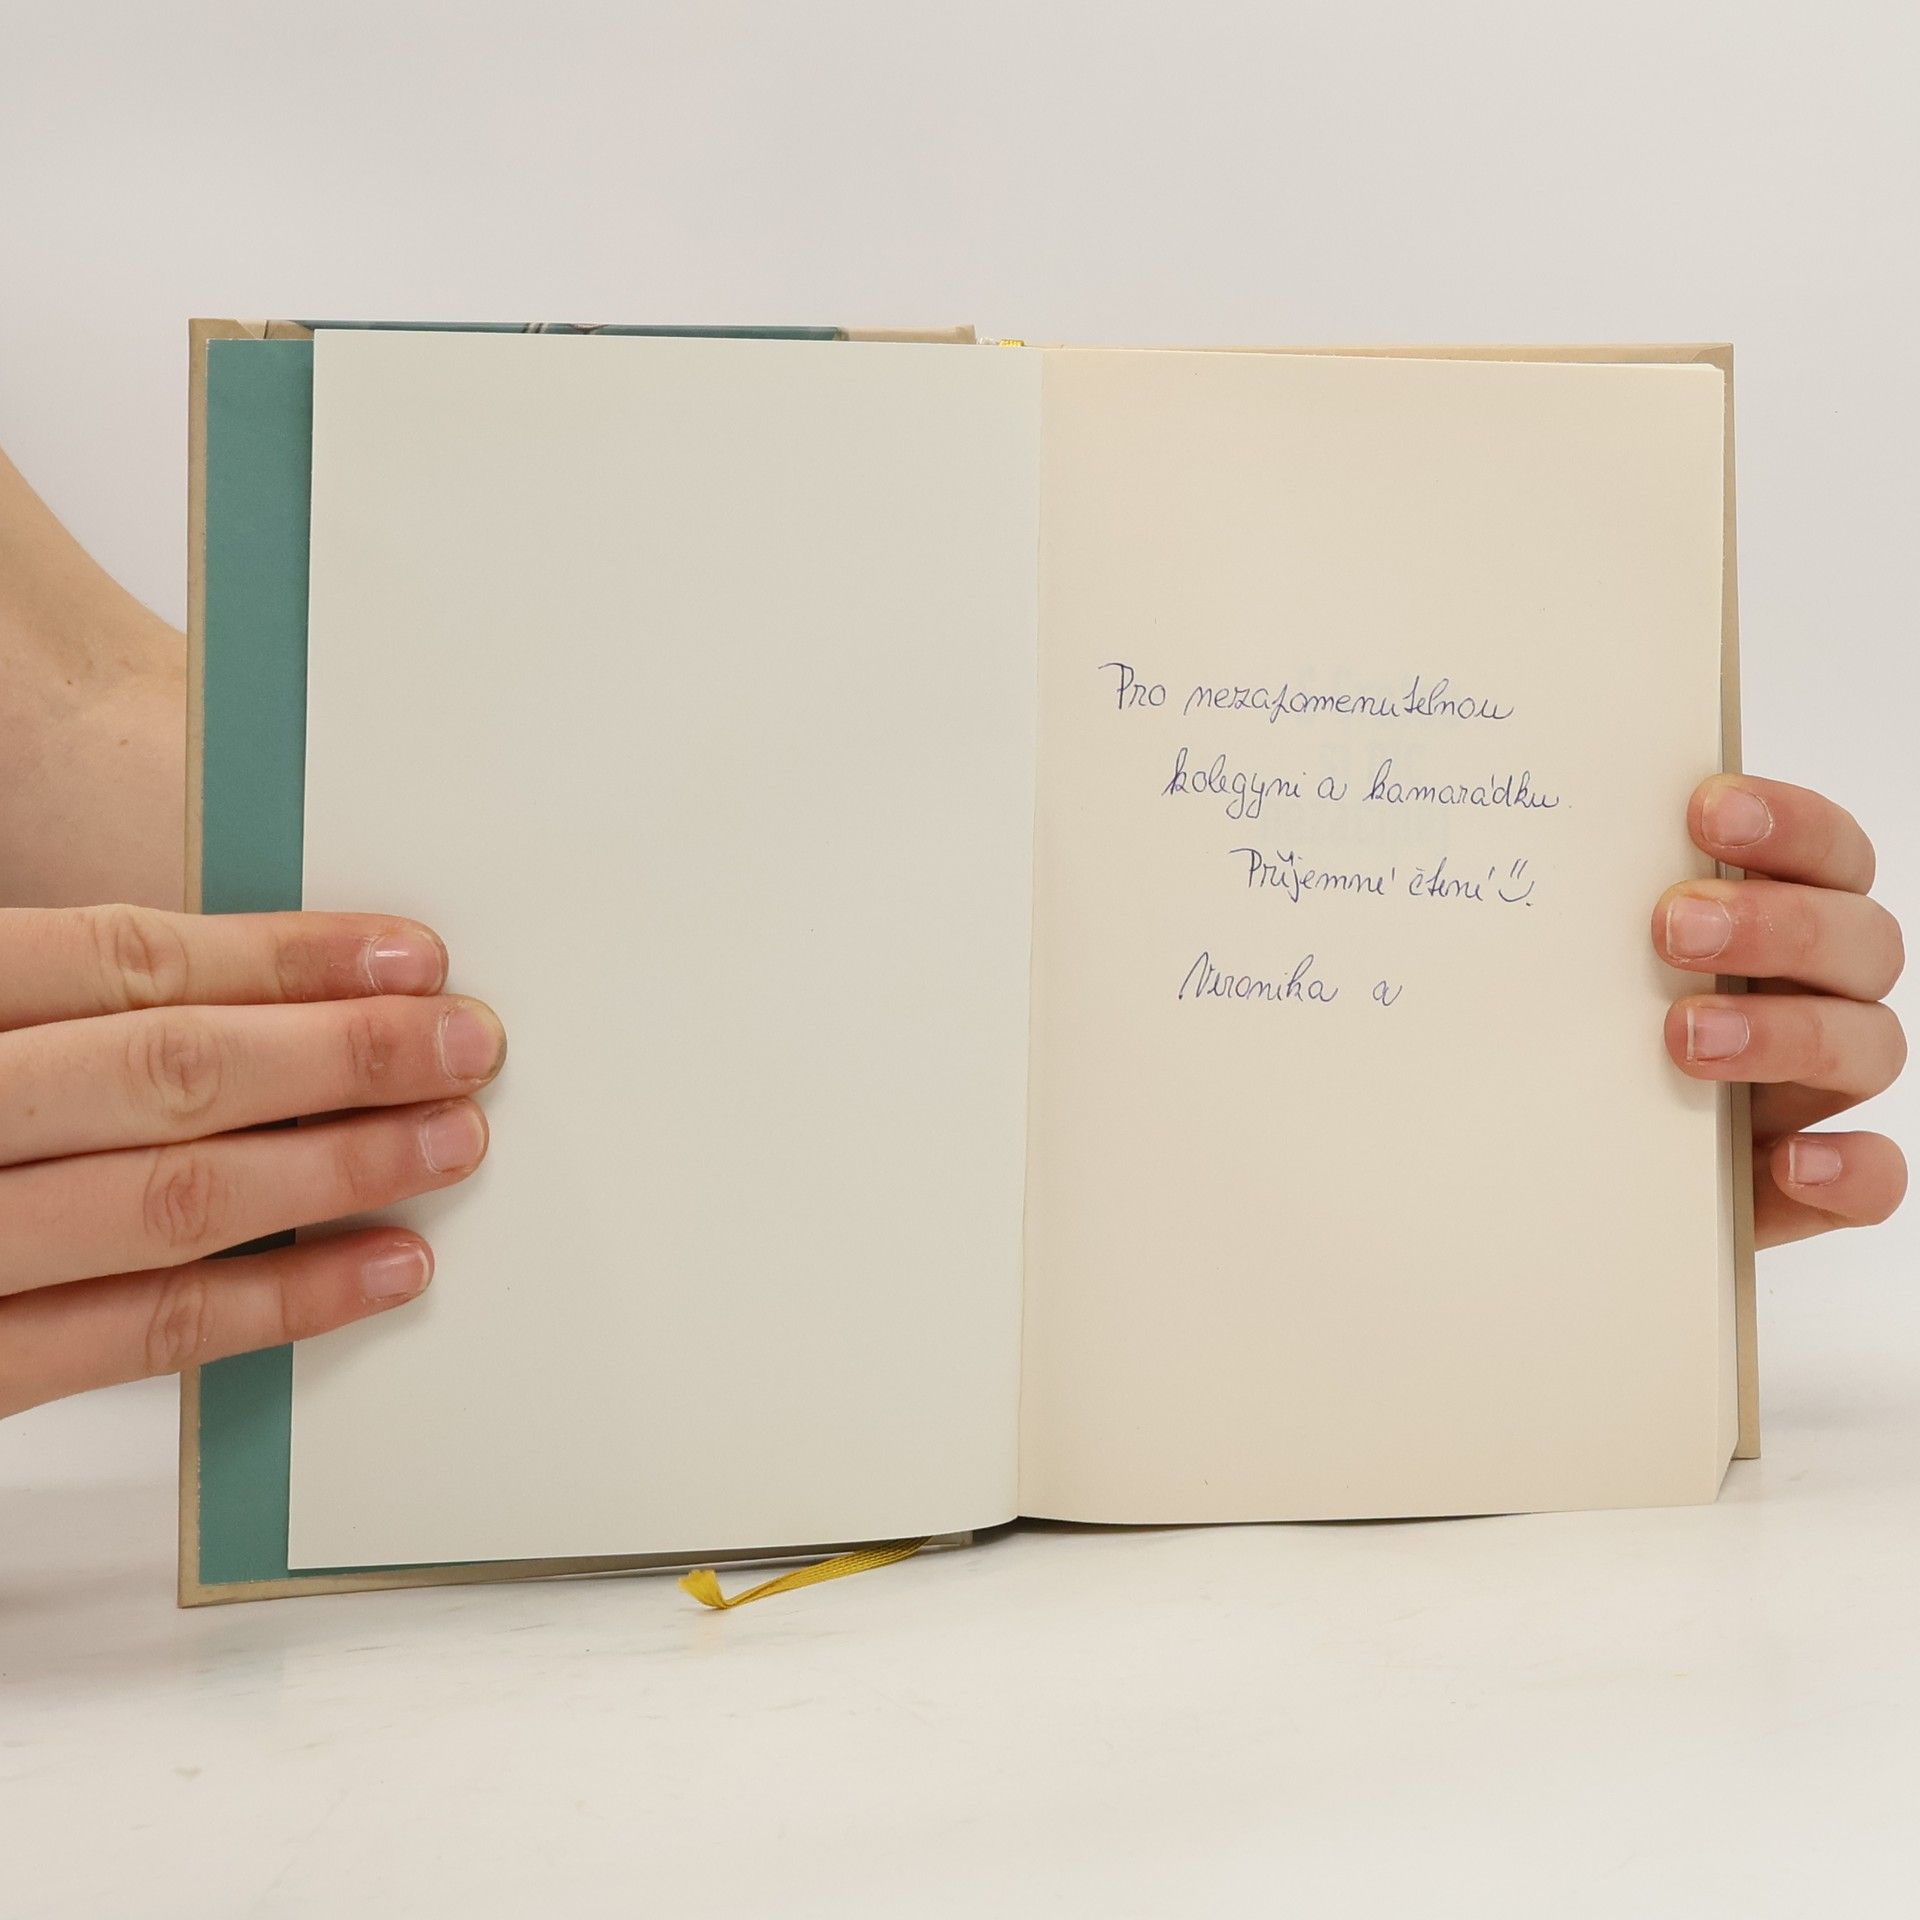 Pro nezapomenutelnou
kolegyni a kamarádku.
Příjemné čtení
Veronika a